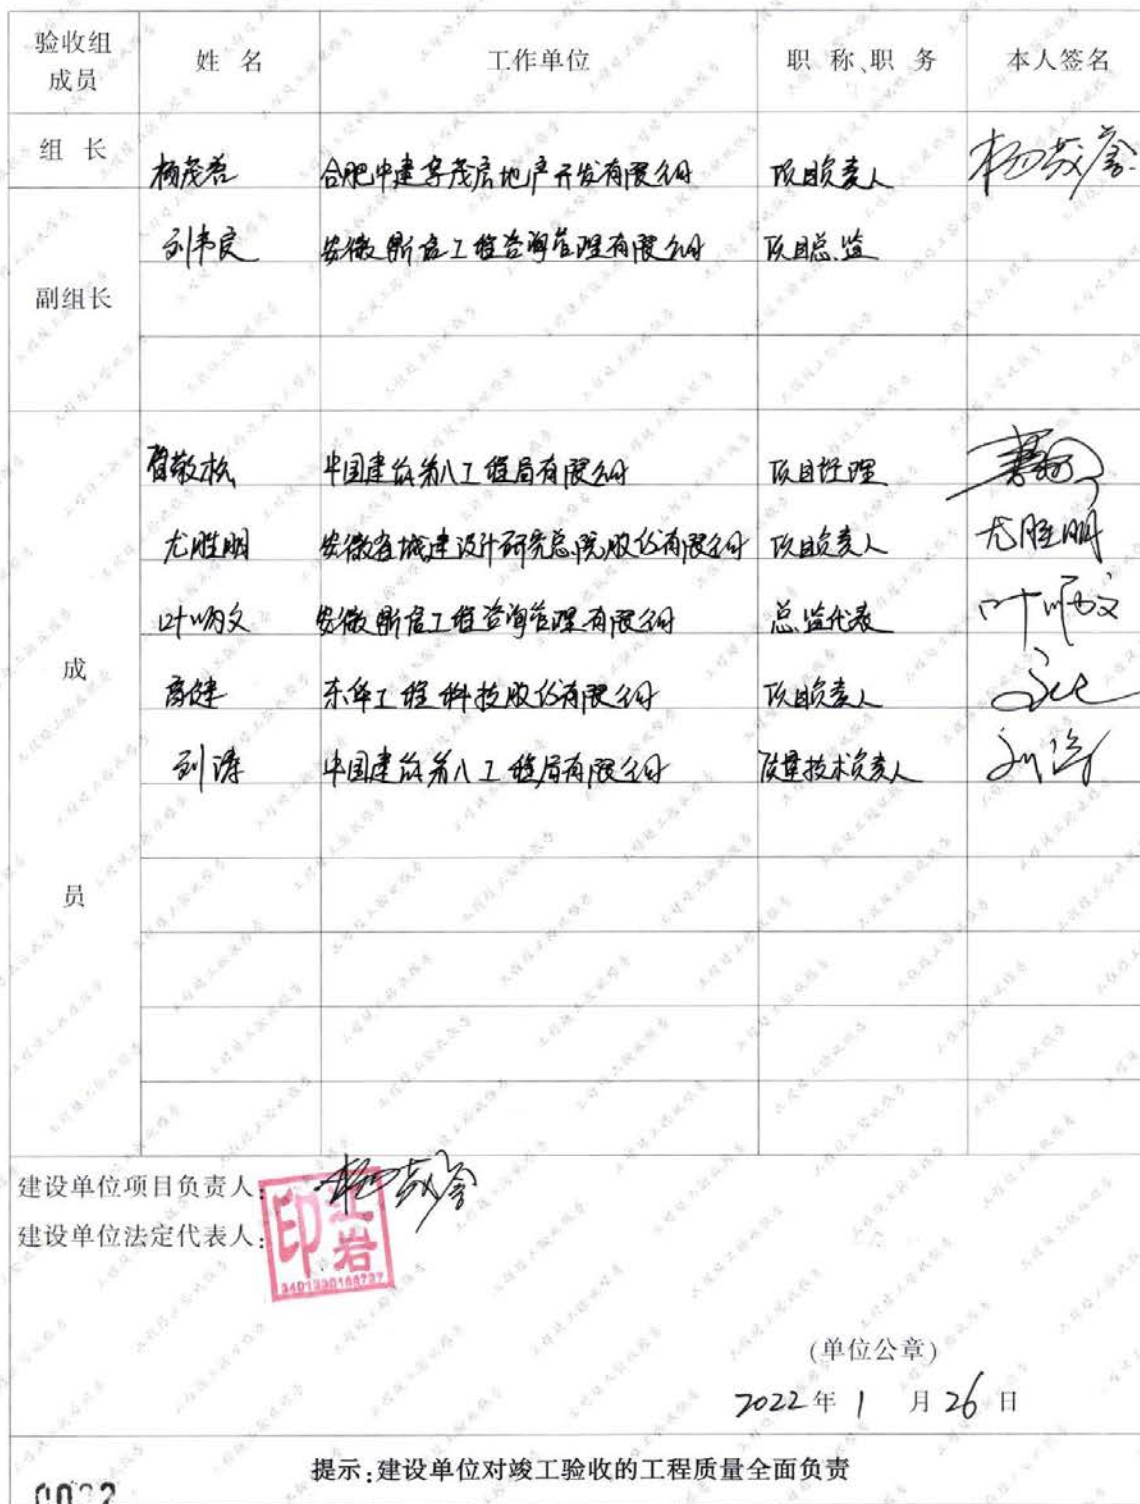 验收组成员 姓 名 工作单位 职 称、职 务 本人签名
组 长 杨茂岩 合肥中建孚茂房地产开发有限公司 项目负责人
副组长 刘韦良 安徽斯信工程咨询管理有限公司 项目总监
成员
敬松 中国建筑第八工程局有限公司 项目经理
尤胜明 安徽省城建设计研究总院股份有限公司 项目负责人 尤胜明
叶 文 安徽斯信工程咨询管理有限公司 总监代表
高健 东华工程科技股份有限公司 项目负责人
刘涛 中国建筑第八工程局有限公司 质量技术负责人 刘涛
建设单位项目负责人:
建设单位法定代表人:
印 岩
(单位公章)
2022年 1 月 26 日
提示:建设单位对竣工验收的工程质量全面负责